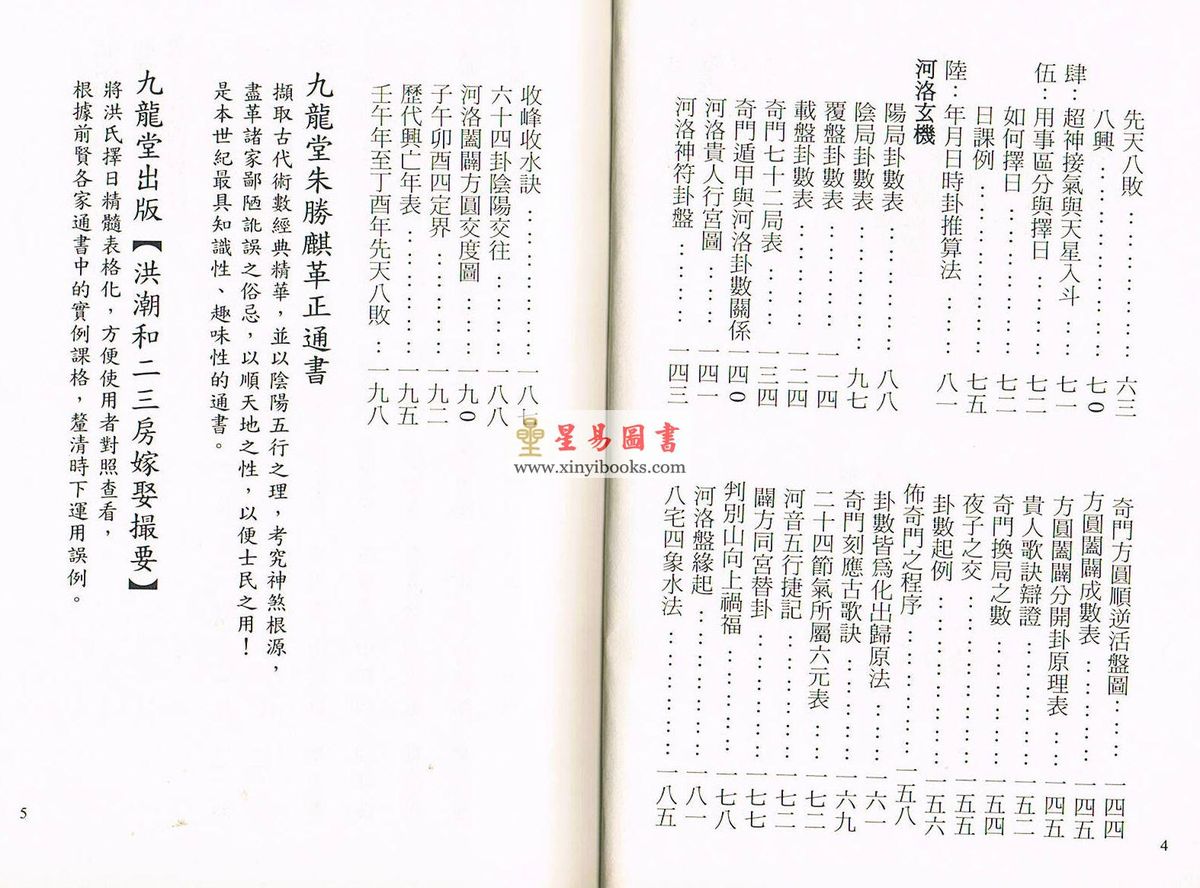 先天八敗……………六三
八興………………七0
肆：超神接氣與天星入斗…七一
伍：用事區分與擇日……七二
如何擇日……………七二
日課例………………七五
陸：年月日時卦推算法……八一
河洛玄機
陽局卦數表…………八八
陰局卦數表…………九七
覆盤卦數表…………一一四
載盤卦數表…………一二四
奇門七十二局表………一三四
奇門遁甲與河洛卦數關係…一四0
河洛貴人行宮圖………一四一
河洛神符卦盤…………一四三
奇門方圓順逆活盤圖……一四四
方圓闔闢成數表………一四五
方圓闔闢分開卦原理表……一四五
貴人歌訣辯證…………一五二
奇門換局之數…………一五四
夜子之交……………一五五
卦數起例……………一五六
佈奇門之程序…………一五八
卦數皆爲化出歸原法……一六一
奇門刻應古歌訣………一六九
二十四節氣所屬六元表……一七二
河音五行捷記…………一七二
闢方同宮替卦…………一七七
判別山向上禍福………一七八
河洛盤緣起…………一八一
八宅四象水法…………一八五
4
收峰收水訣…………一八七
六十四卦陰陽交往………一八八
河洛闔闢方圓交度圖……一九0
子午卯酉四定界………一九二
歷代興亡年表…………一九五
壬午年至丁酉年先天八敗…一九八
九龍堂朱勝麒革正通書
擷取古代術數經典精華，並以陰陽五行之理，考究神煞根源，
盡革諸家鄙陋訛誤之俗忌，以順天地之性，以便士民之用！
是本世紀最具知識性、趣味性的通書。
九龍堂出版【洪潮和二三房嫁娶撮要】
將洪氏擇日精髓表格化，方便使用者對照查看，
根據前賢各家通書中的實例課格，釐清時下運用誤例。
5
星易圖書
www.xinyibooks.com